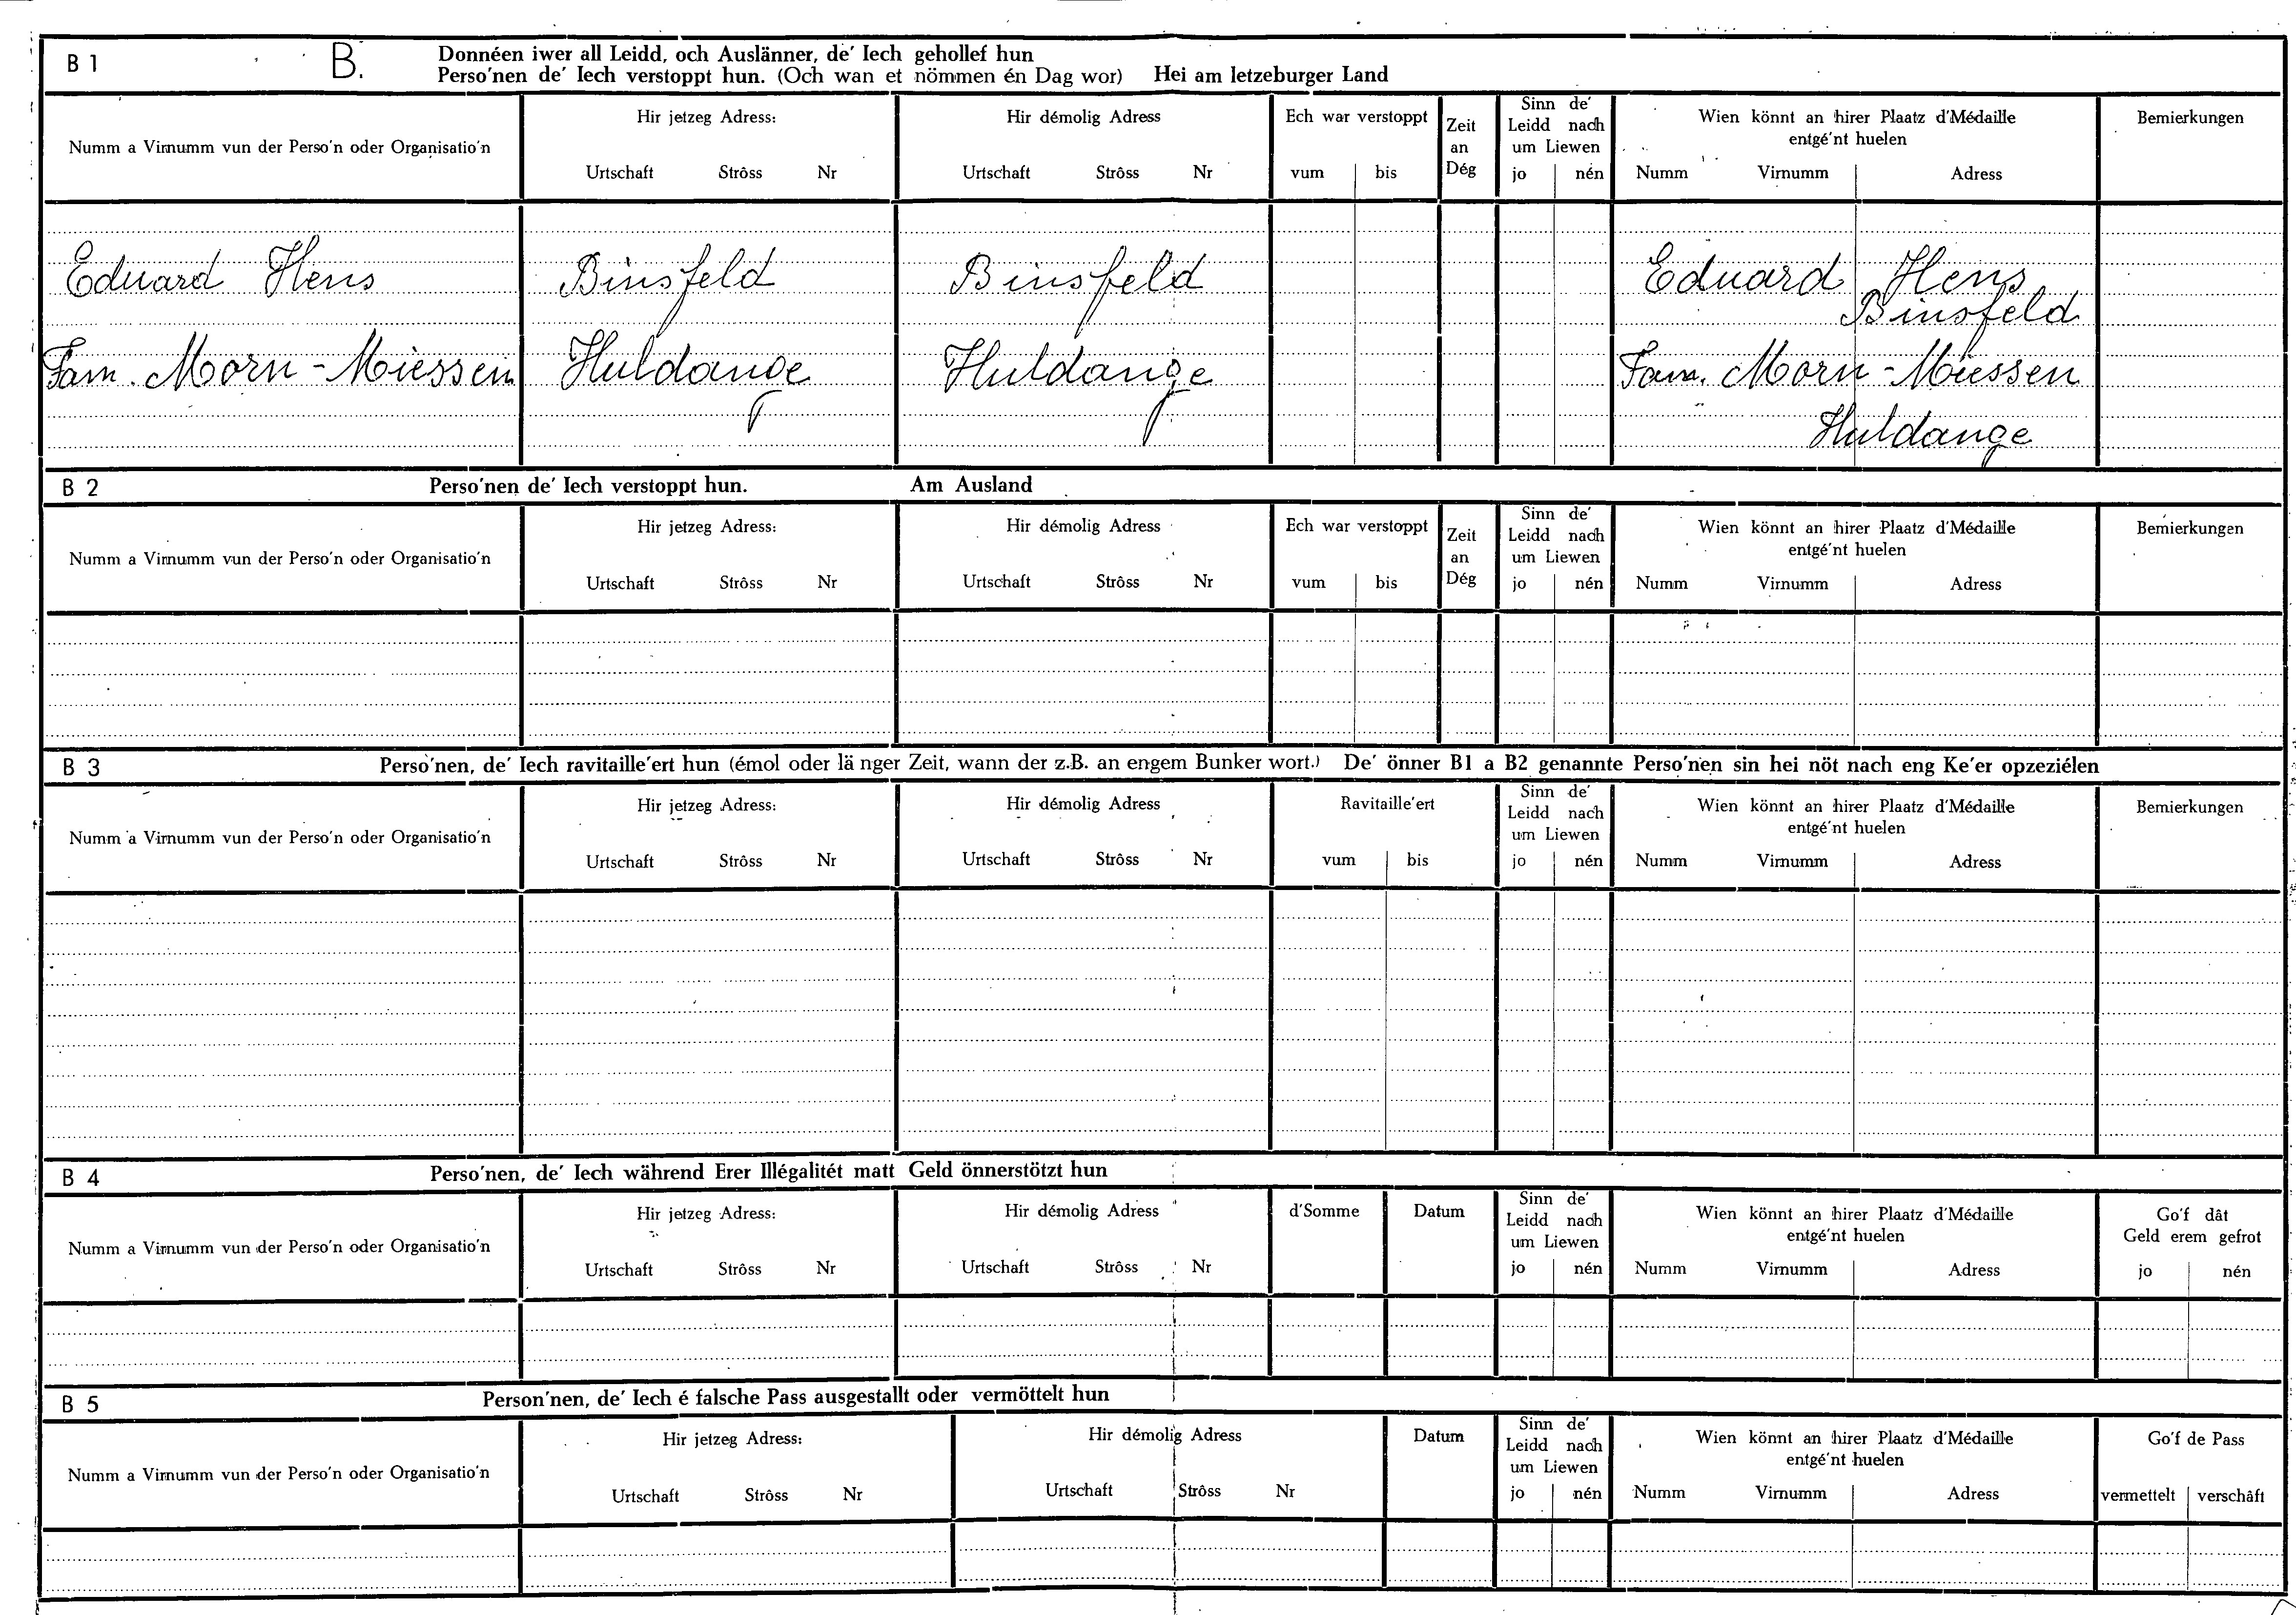 B 1 B. Donnéen iwer all Leidd, och Auslänner, de' Iech gehollef hun
Perso'nen de' Iech verstoppt hun. (Och wan et nömmen én Dag wor) Hei am letzeburger Land
Numm a Virnumm vun der Perso'n oder Organisatio'n
Hir jetzeg Adress:
Urtschaft Strôss Nr
Hir démolig Adress
Urtschaft Strôss Nr
Ech war verstoppt
vum bis
Zeit
an
Dég
Sinn de'
Leidd nach
um Liewen
jo nén
Wien könnt an hirer Plaatz d'Médaille
entgé'nt huelen
Numm Virnumm Adress
Bemierkungen
Eduard Hens Binsfeld Binsfeld Eduard Hens
Binsfeld
Fam. Morn-Miessen Huldange Huldange Fam. Morn-Miessen
Huldange
B 2 Perso'nen de' Iech verstoppt hun. Am Ausland
Numm a Virnumm vun der Perso'n oder Organisatio'n
Hir jetzeg Adress:
Urtschaft Strôss Nr
Hir démolig Adress
Urtschaft Strôss Nr
Ech war verstoppt
vum bis
Zeit
an
Dég
Sinn de'
Leidd nach
um Liewen
jo nén
Wien könnt an hirer Plaatz d'Médaille
entgé'nt huelen
Numm Virnumm Adress
Bemierkungen
B 3 Perso'nen, de' Iech ravitaille'ert hun (émol oder länger Zeit, wann der z.B. an engem Bunker wort.) De' önner B1 a B2 genannte Perso'nen sin hei nöt nach eng Ke'er opzeziélen
Numm a Virnumm vun der Perso'n oder Organisatio'n
Hir jetzeg Adress:
Urtschaft Strôss Nr
Hir démolig Adress
Urtschaft Strôss Nr
Ravitaille'ert
vum bis
Sinn de'
Leidd nach
um Liewen
jo nén
Wien könnt an hirer Plaatz d'Médaille
entgé'nt huelen
Numm Virnumm Adress
Bemierkungen
B 4 Perso'nen, de' Iech während Erer Illégalitét matt Geld önnerstötzt hun
Numm a Virnumm vun der Perso'n oder Organisatio'n
Hir jetzeg Adress:
Urtschaft Strôss Nr
Hir démolig Adress
Urtschaft Strôss Nr
d'Somme
Datum
Sinn de'
Leidd nach
um Liewen
jo nén
Wien könnt an hirer Plaatz d'Médaille
entgé'nt huelen
Numm Virnumm Adress
Go'f dât
Geld erem gefrot
jo nén
B 5 Person'nen, de' Iech é falsche Pass ausgestallt oder vermöttelt hun
Numm a Virnumm vun der Perso'n oder Organisatio'n
Hir jetzeg Adress:
Urtschaft Strôss Nr
Hir démolig Adress
Urtschaft Strôss Nr
Datum
Sinn de'
Leidd nach
um Liewen
jo nén
Wien könnt an hirer Plaatz d'Médaille
entgé'nt huelen
Numm Virnumm Adress
Go'f de Pass
vermettelt verschâft